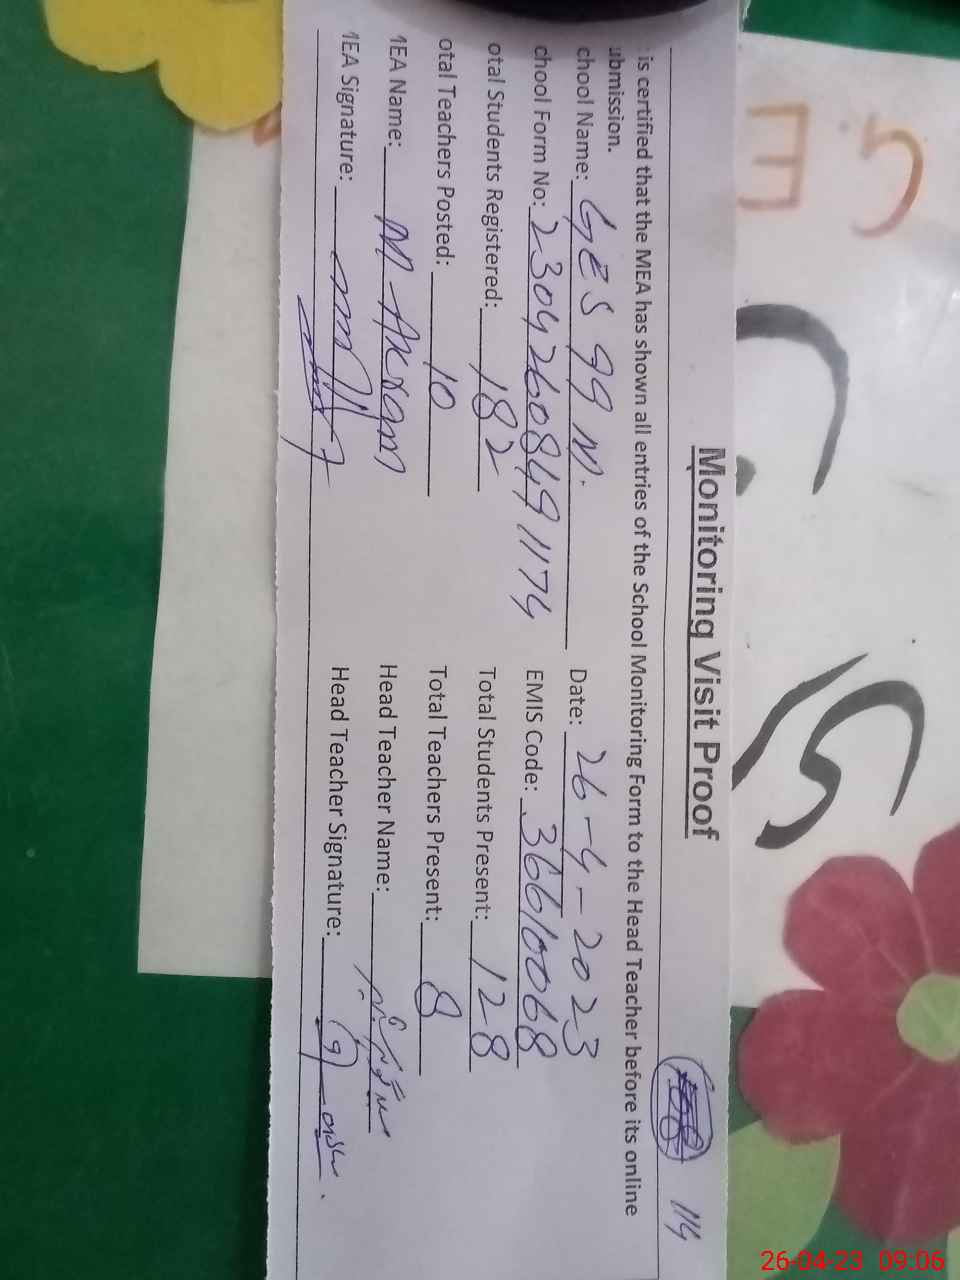 Monitoring Visit Proof
114
is certified that the MEA has shown all entries of the School Monitoring Form to the Head Teacher before its online
ubmission.
chool Name: GES 99 M. Date: 26-4-2023
chool Form No: 23042608491174 EMIS Code: 36610068
otal Students Registered: 182 Total Students Present: 128
otal Teachers Posted: 10 Total Teachers Present: 8
MEA Name: M Akram Head Teacher Name:
MEA Signature: Head Teacher Signature:
26-04-23 09:06